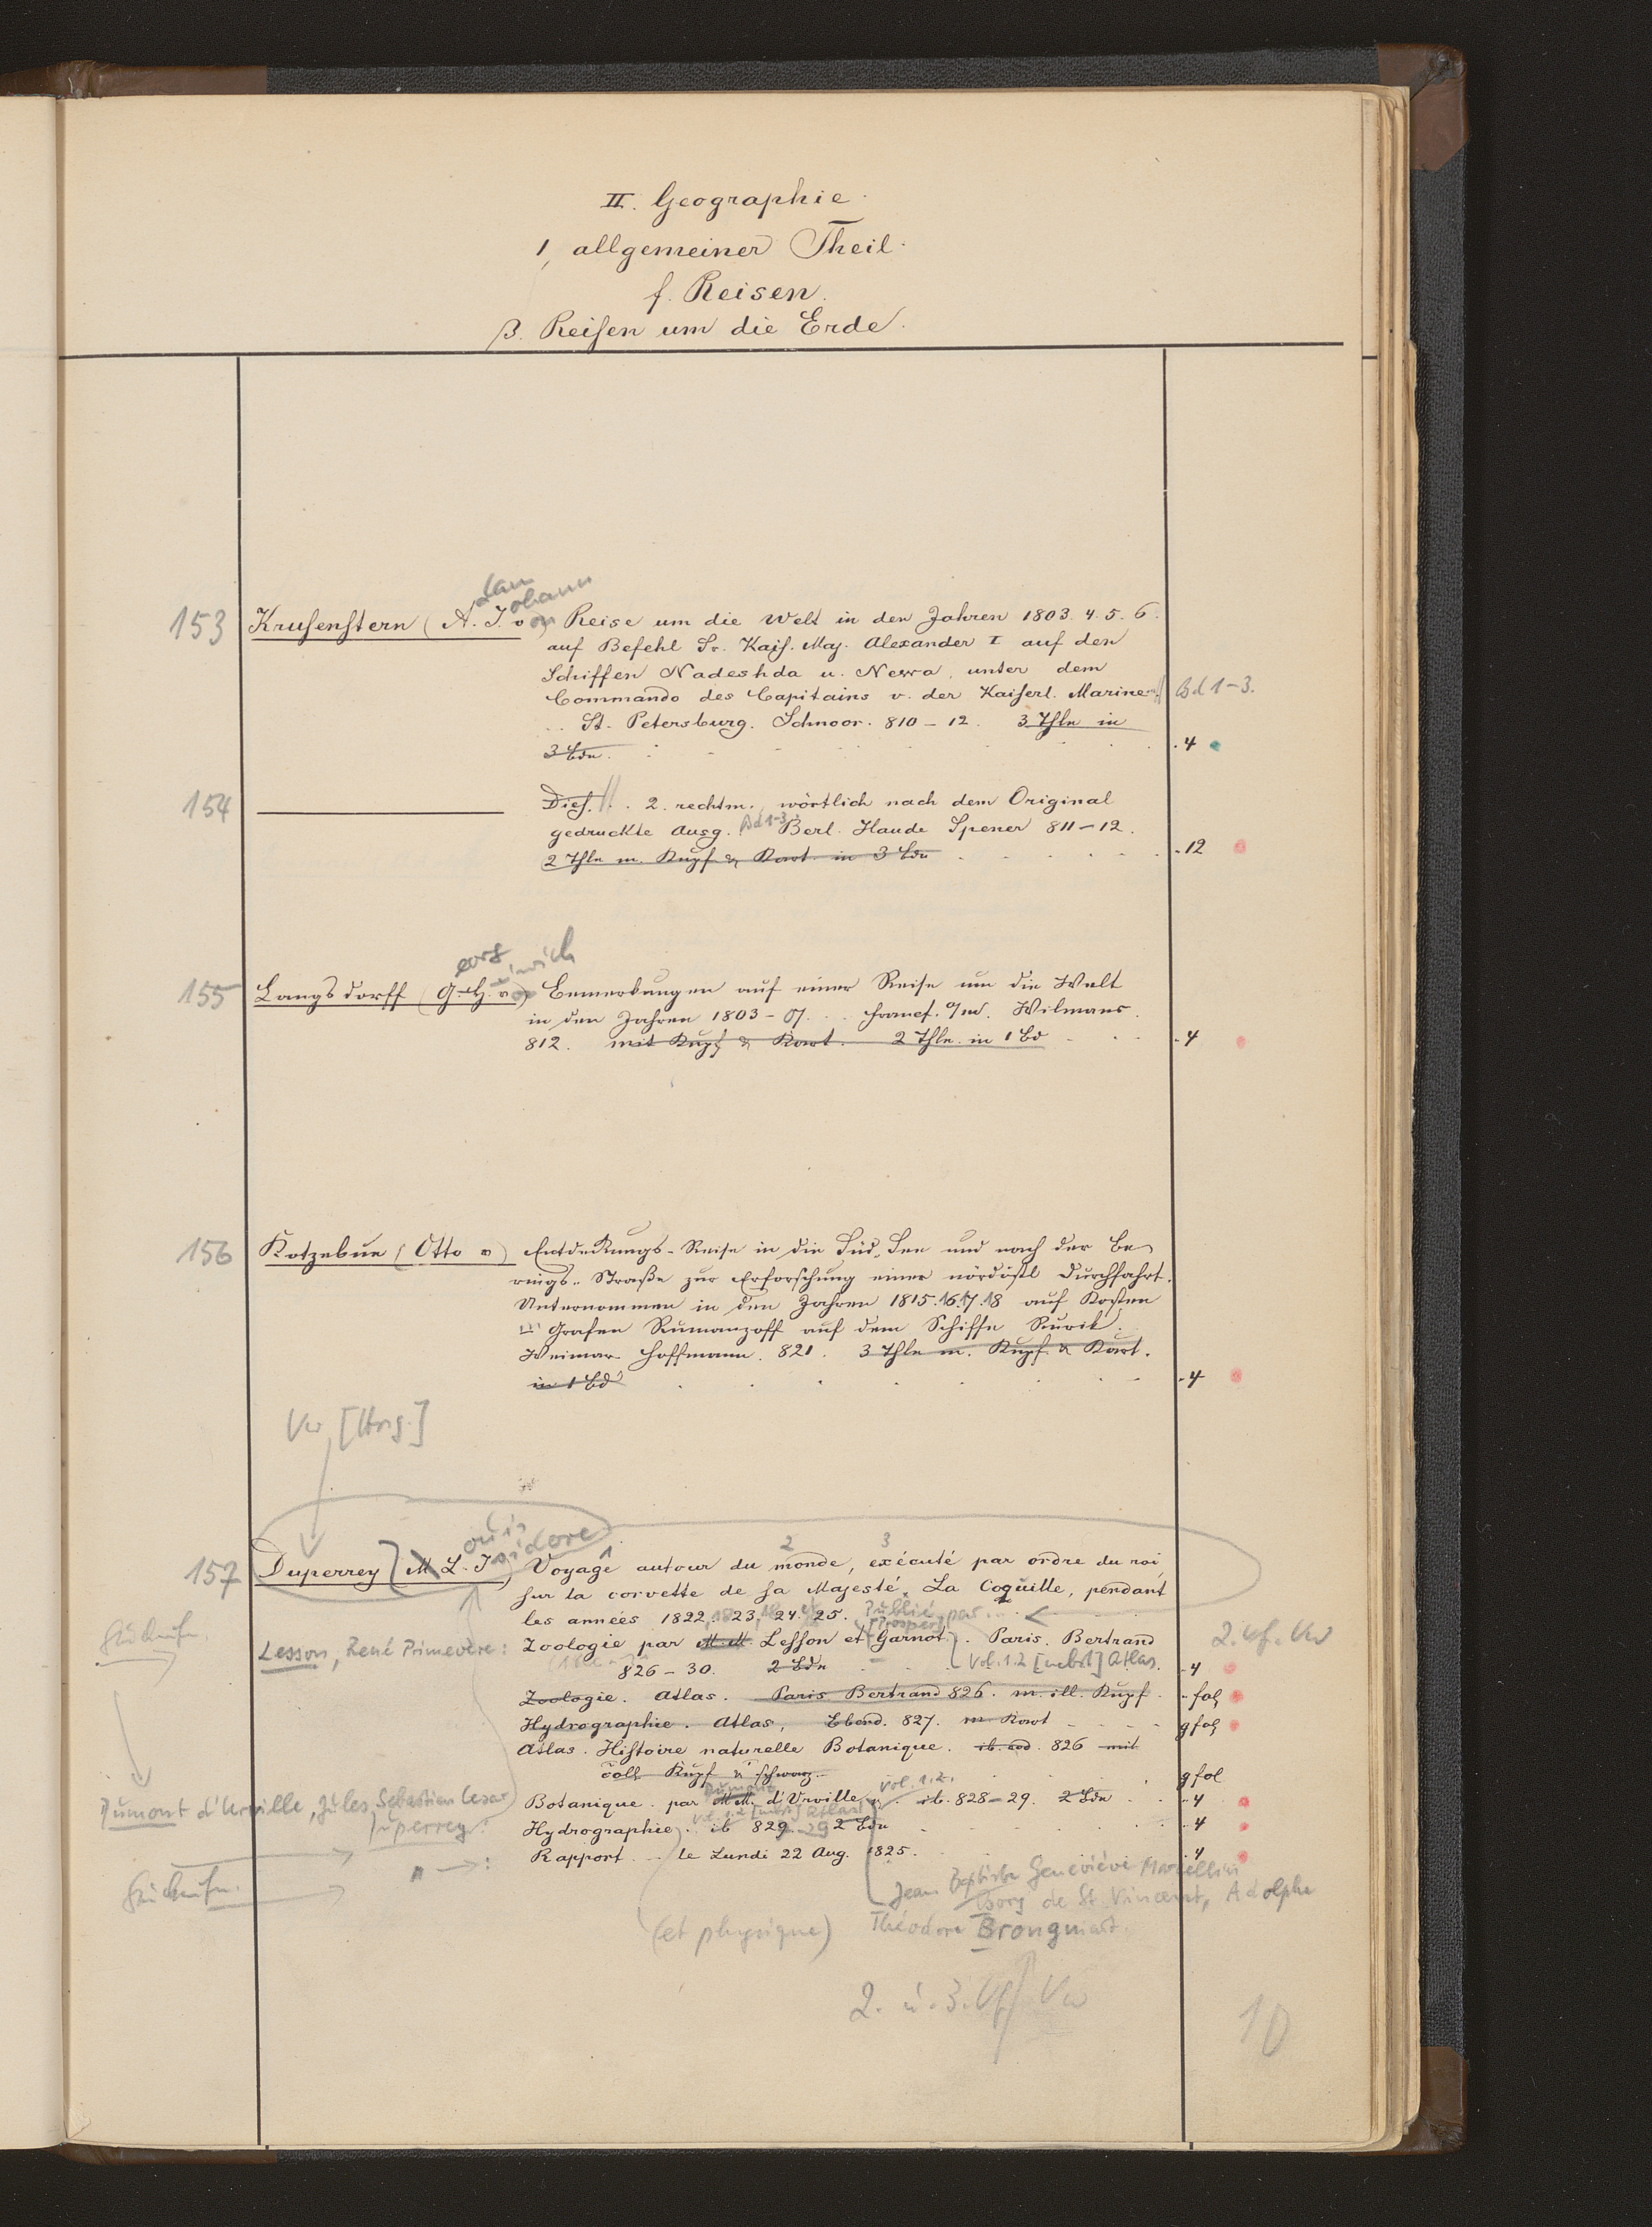 II. Geographie.
1, allgemeiner Theil.
f. Reisen.
β. Reisen um die Erde.
153 Krusenstern (A. J. v) Reise um die Welt in den Jahren 1803. 4. 5. 6.
dam ohann on
auf Befehl Sr. Kais. Maj. Alexander I auf den
Schiffen Nadeshda u. Newa, unter dem
Commando des Capitains v. der Kaiserl. Marine // Bd 1-3.
.. St. Petersburg. Schnoor. 810-12. 3 Thle in
3 Bdn. . 4
154 Dies. // . 2. rechtm., wörtlich nach dem Original
gedruckte Ausg. Bd 1-3. Berl. Haude Spener 811-12.
2 Thle m. Kupf & Kart. in 3 Bdn . 12
eorg einrich
155 Langsdorff (G. H. v) Bemerkungen auf einer Reise um die Welt
in den Jahren 1803-07. .. Francf. a/M. Wilmans.
812. mit Kupf & Kart. 2 Thle. in 1 Bd . 4
156 Kotzebue (Otto v) Entdeckungs-Reise in die Süd-See und nach der Be-
rings-Straße zur Erforschung einer nördöstl Durchfahrt.
Unternommen in den Jahren 1815. 16. 17. 18 auf Kosten
Grafen Rumanzoff auf dem Schiffe Rurik.
Weimar Hoffmann. 821. 3 Thle m. Kupf. & Kart.
in 1 Bd . 4
Vw [Hrsg.]
ouis sidore
2 3
157 Duperrey (M L. I) Voyage autour du monde, exécuté par ordre du roi,
sur la corvette de sa Majesté, La Coquille, pendant
les années 1822, 1823, 1824 et 25. Publié par ...
[Prosper]
Lesson, René Primevère: Zoologie par M. M. Lesson et Garnot. Paris. Bertrand 2. Vf. Vw
826-30. 2 Bdn Vol. 1.2 [nebst] Atlas. . 4
Zoologie. Atlas. Paris Bertrand 826. m. ill. Kupf. - fol
Hydrographie. Atlas, Ebend. 827. m Kart g fol
Atlas. Histoire naturelle Botanique. ib. eod. 826 mit
coll Kupf & schwarz g fol
Dumont Vol. 1.2.
Dumont d'Urville, Jules Sebastien Cesar Botanique par M.M. d'Urville ib. 828-29. 2 Bdn 4
Vol. 1.2 [nebst] Atlas
Duperrey: Hydrographie. ib 829 -29 2 Bdn 4
" →: Rapport .. le Lundi 22 Aug. 1825. 4
Jean Baptiste Geneviève Marcellin
Bory de St. Vincent, Adolphe
(et physique) Théodore Brongniart.
2. u. 3. Vf Vw
10